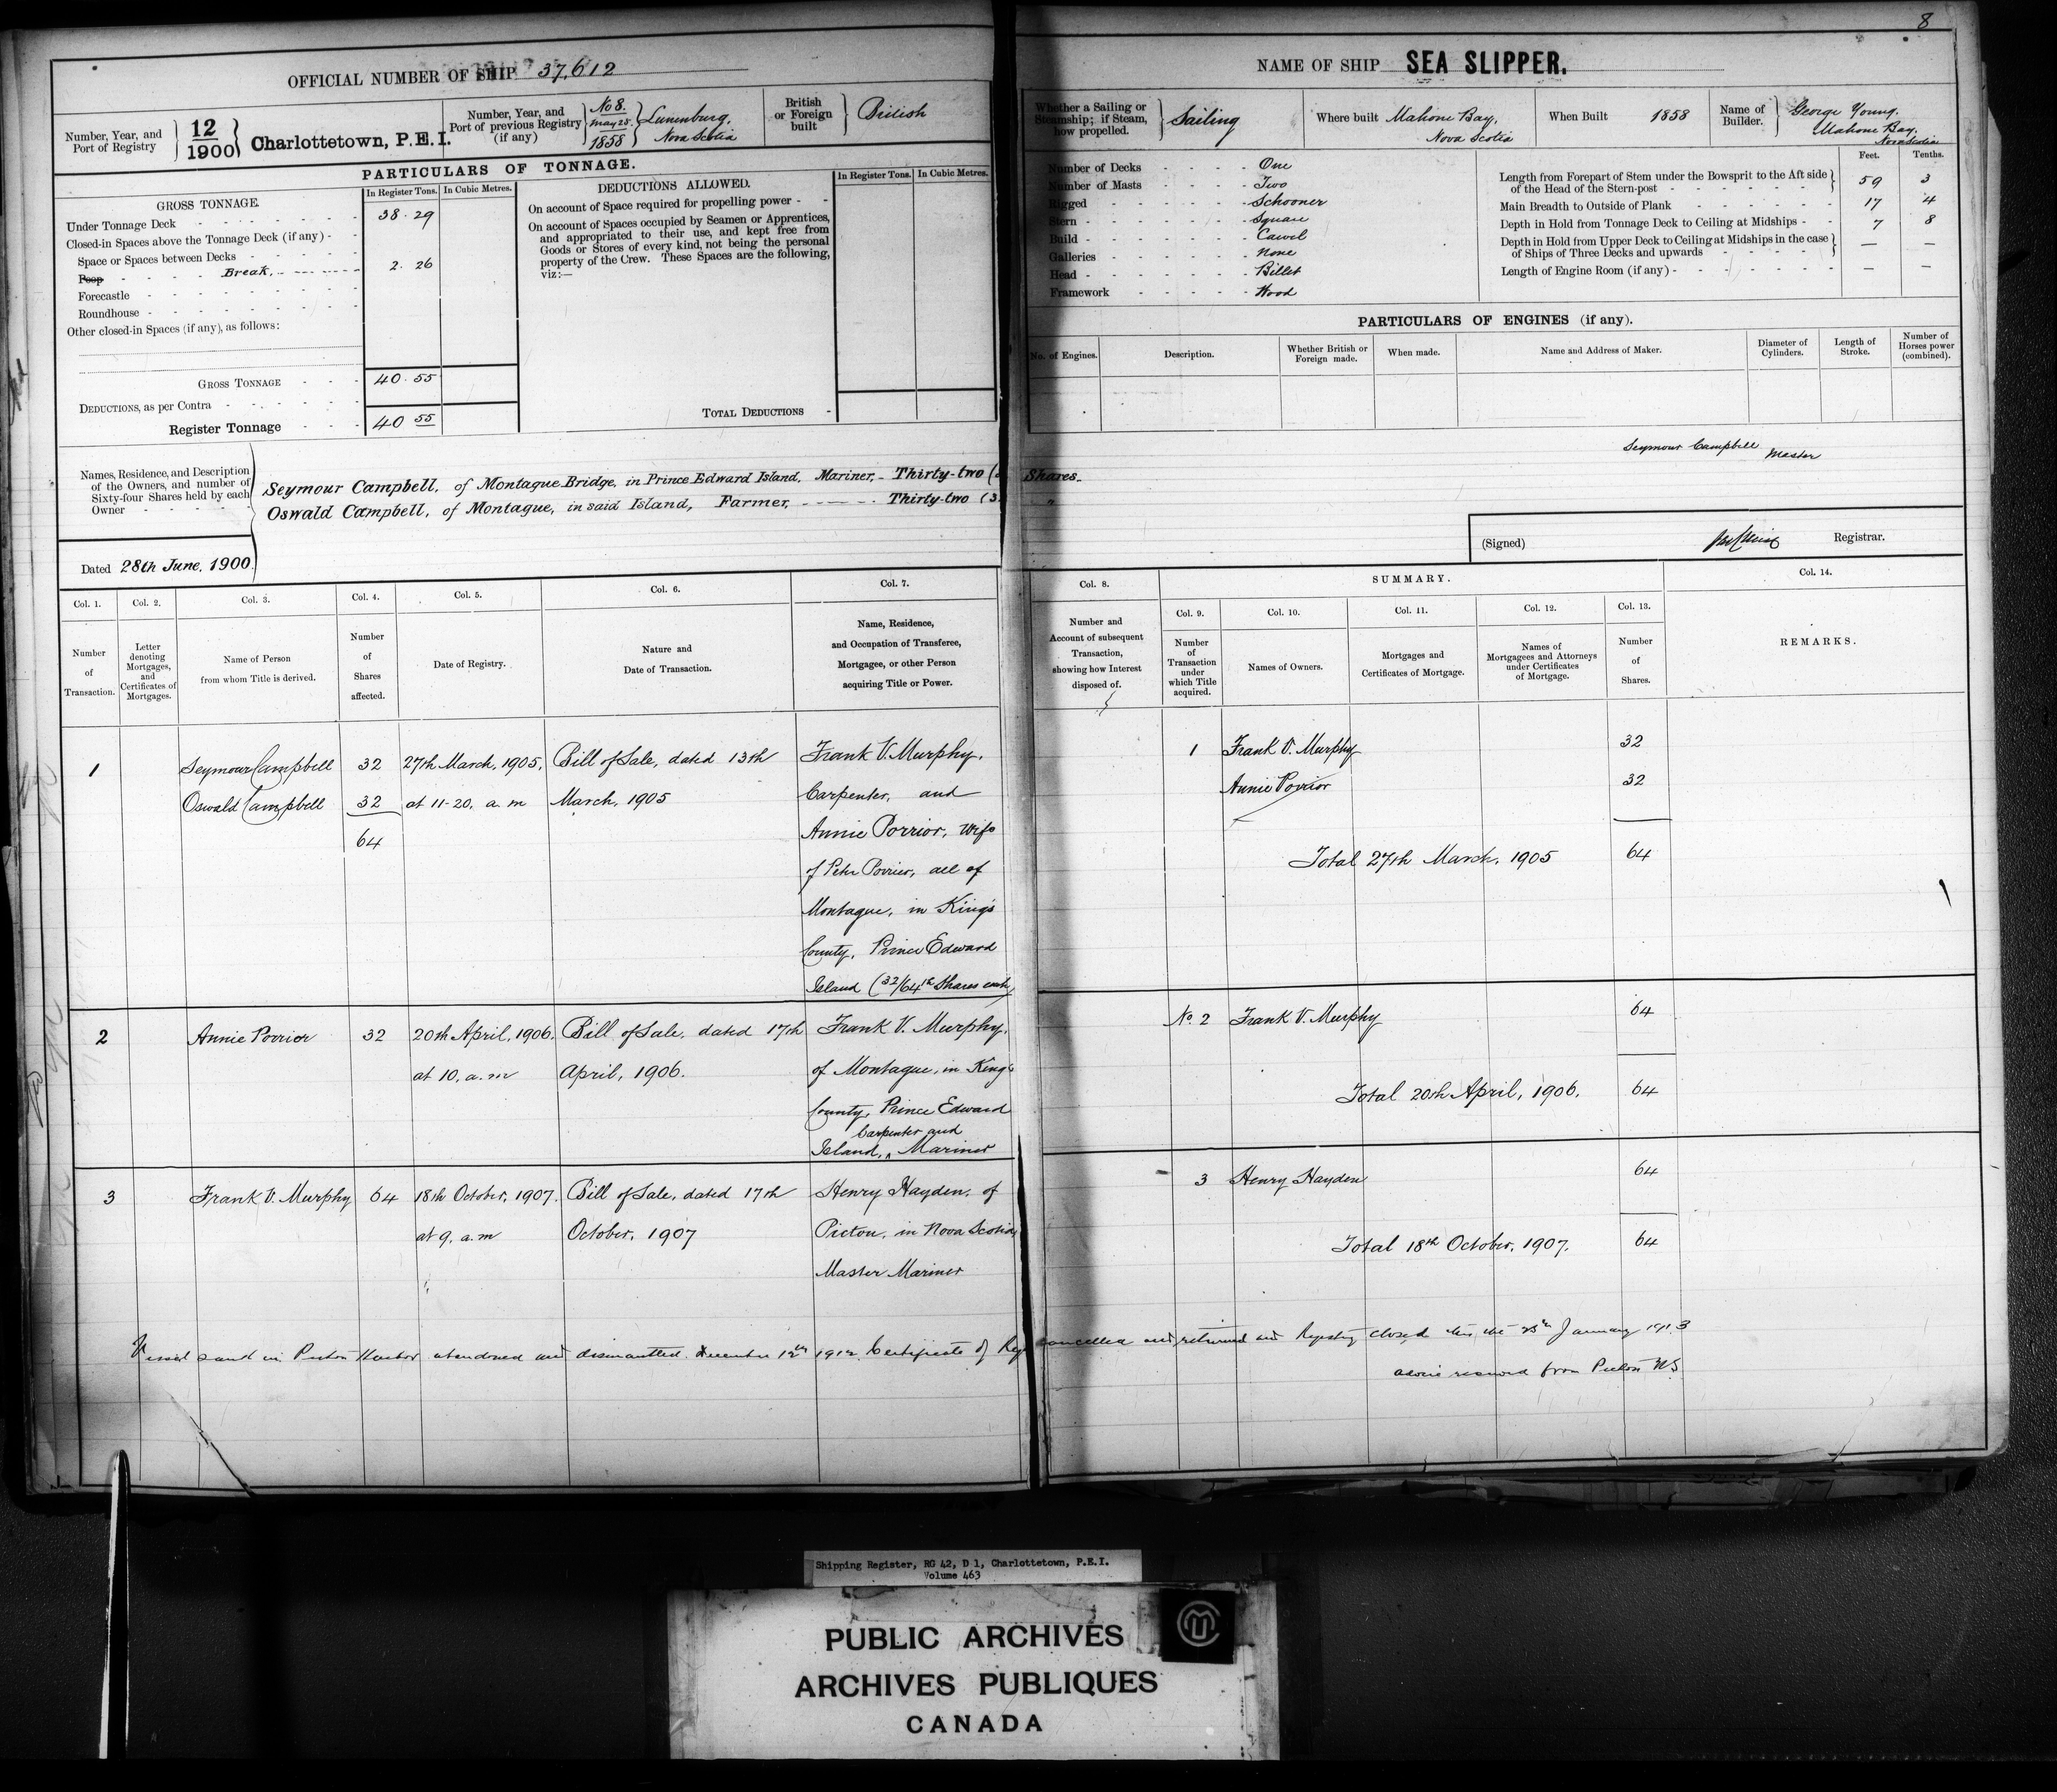 8
OFFICIAL NUMBER OF SHIP 37,612
Number, Year, and
Port of Registry
12
1900
Charlottetown, P.E.I.
Number, Year, and
Port of previous Registry
(if any)
No 8.
May 28.
1858
Lunenburg,
Nova Scotia
British
or Foreign
built
British
PARTICULARS OF TONNAGE.
In Register Tons. In Cubic Metres.
GROSS TONNAGE.
Under Tonnage Deck 38.29
Closed-in Spaces above the Tonnage Deck (if any)
Space or Spaces between Decks
Poop Break, 2.26
Forecastle
Roundhouse
Other closed-in Spaces (if any), as follows:
GROSS TONNAGE 40.55
DEDUCTIONS, as per Contra
Register Tonnage 40 55
DEDUCTIONS ALLOWED.
In Register Tons. In Cubic Metres.
On account of Space required for propelling power
On account of Spaces occupied by Seamen or Apprentices,
and appropriated to their use, and kept free from
Goods or Stores of every kind, not being the personal
property of the Crew. These Spaces are the following,
viz:—
TOTAL DEDUCTIONS
Names, Residence, and Description
of the Owners, and number of
Sixty-four Shares held by each
Owner
Seymour Campbell, of Montague Bridge, in Prince Edward Island, Mariner, - Thirty-two (
Oswald Campbell, of Montague, in said Island, Farmer, Thirty-two (3
Dated 28th June, 1900.
NAME OF SHIP SEA SLIPPER.
Whether a Sailing or
Steamship; if Steam,
how propelled.
Sailing
Where built Mahone Bay,
Nova Scotia
When Built 1858
Name of
Builder.
George Young,
Mahone Bay,
Nova Scotia
Number of Decks One
Number of Masts Two
Rigged Schooner
Stern Square
Build Carvel
Galleries None
Head Billet
Framework Wood
Feet. Tenths.
Length from Forepart of Stem under the Bowsprit to the Aft side
of the Head of the Stern-post 59 3
Main Breadth to Outside of Plank 17 4
Depth in Hold from Tonnage Deck to Ceiling at Midships 7 8
Depth in Hold from Upper Deck to Ceiling at Midships in the case
of Ships of Three Decks and upwards — —
Length of Engine Room (if any) — —
PARTICULARS OF ENGINES (if any).
No. of Engines. Description. Whether British or
Foreign made. When made. Name and Address of Maker. Diameter of
Cylinders. Length of
Stroke. Number of
Horses power
(combined).
Seymour Campbell Master
Shares.
"
(Signed) Registrar.
Col. 1. Col. 2. Col. 3. Col. 4. Col. 5. Col. 6. Col. 7.
Number
of
Transaction.
Letter
denoting
Mortgages,
and
Certificates of
Mortgages.
Name of Person
from whom Title is derived.
Number
of
Shares
affected.
Date of Registry.
Nature and
Date of Transaction.
Name, Residence,
and Occupation of Transferee,
Mortgagee, or other Person
acquiring Title or Power.
Col. 8.
Number and
Account of subsequent
Transaction,
showing how Interest
disposed of.
SUMMARY.
Col. 9. Col. 10. Col. 11. Col. 12. Col. 13.
Number
of
Transaction
under
which Title
acquired.
Names of Owners.
Mortgages and
Certificates of Mortgage.
Names of
Mortgagees and Attorneys
under Certificates
of Mortgage.
Number
of
Shares.
Col. 14.
REMARKS.
1 Seymour Campbell 32 27th March, 1905, Bill of Sale, dated 13th Frank V. Murphy,
Oswald Campbell 32 at 11-20, a.m March, 1905 Carpenter, and
64 Annie Porrior, Wife
of Peter Poirier, all of
Montague, in King's
County, Prince Edward
Island (32/64th Shares each)
1 Frank V. Murphy 32
Annie Porrior 32
Total 27th March, 1905 64
2 Annie Porrior 32 20th April, 1906, Bill of Sale, dated 17th Frank V. Murphy,
at 10, a.m April, 1906. of Montague, in King's
County, Prince Edward
Carpenter and
Island, ^ Mariner
No. 2 Frank V. Murphy 64
Total 20th April, 1906. 64
3 Frank V. Murphy 64 18th October, 1907. Bill of Sale, dated 17th Henry Hayden, of
at 9, a.m October, 1907 Pictou, in Nova Scotia,
Master Mariner
3 Henry Hayden 64
Total 18th October, 1907. 64
Vessel sunk in Pictou Harbor abandoned and dismantled December 12th 1912. Certificate of Reg cancelled and returned and Registry closed this the 25th January 1913
advice received from Pictou NS
Shipping Register, RG 42, D 1, Charlottetown, P.E.I.
Volume 463
PUBLIC ARCHIVES
ARCHIVES PUBLIQUES
CANADA